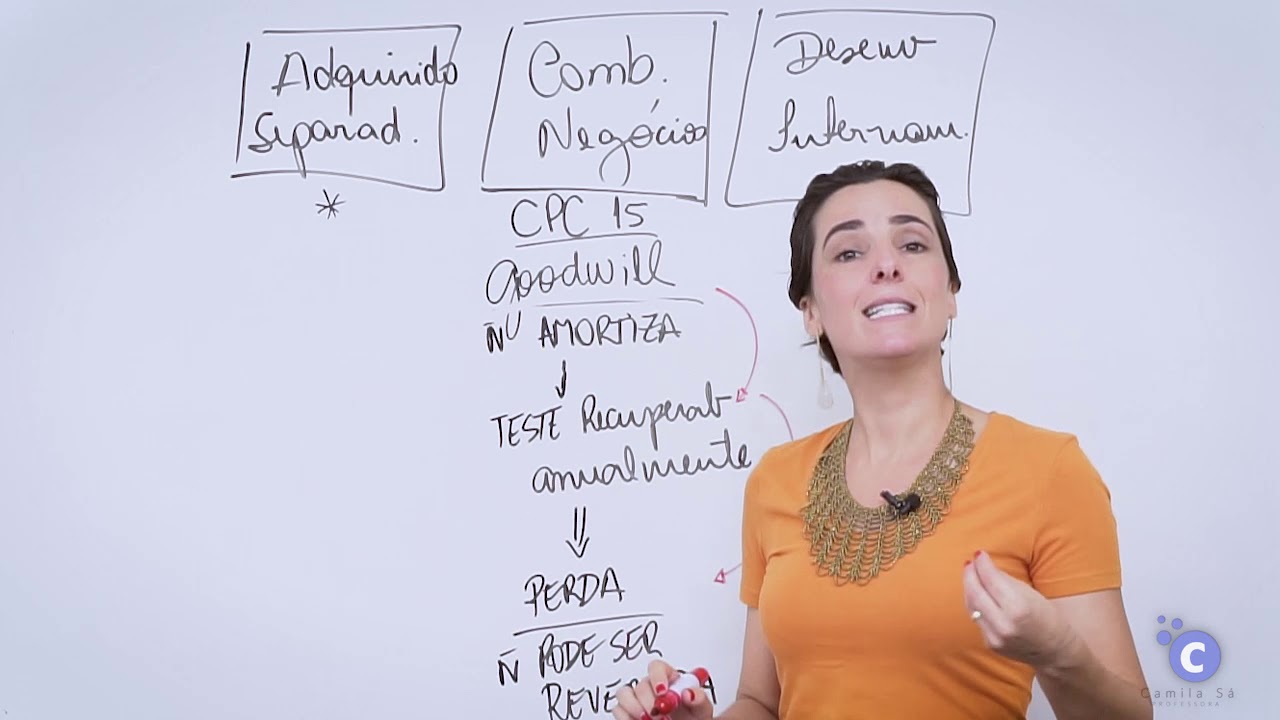 Adquirido
Separad.
*
Comb.
Negócios
Desenv
Internam.
CPC 15
Goodwill
Ñ AMORTIZA
TESTE Recuperab
anualmente
PERDA
Ñ PODE SER
C
Camila Sá
PROFESSORA